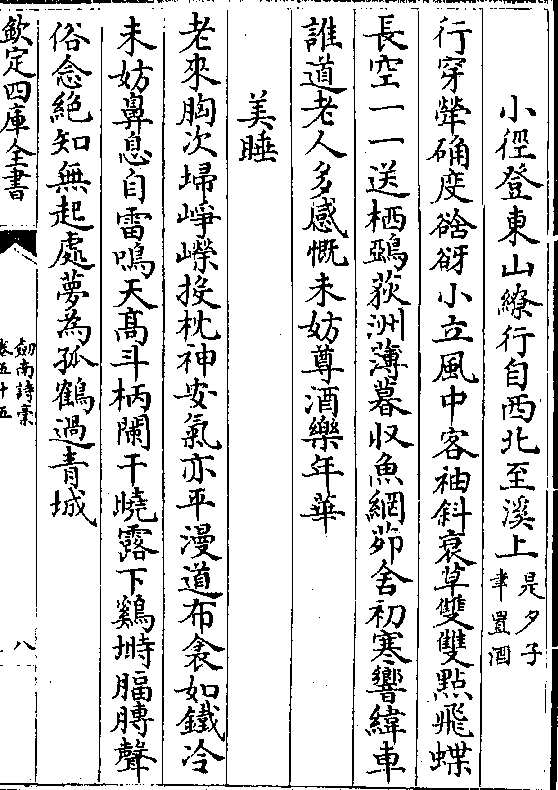 小徑登東山繚行自西北至溪上是夕子
聿置酒
行穿犖确度谽谺小立風中客袖斜衰草雙雙㸃飛蝶
長空一一送栖鵶荻洲薄暮收魚網茆舍初寒響緯車
誰道老人多感慨未妨尊酒樂年華
美睡
老來胸次埽崢嶸投枕神安氣亦平漫道布衾如鐵冷
未妨鼻息自雷鳴天髙斗柄闌干曉露下鷄塒腷膊聲
俗念絶知無起處夢為孤鶴過青城
欽定四庫全書
劒南詩稾
卷五十五
八